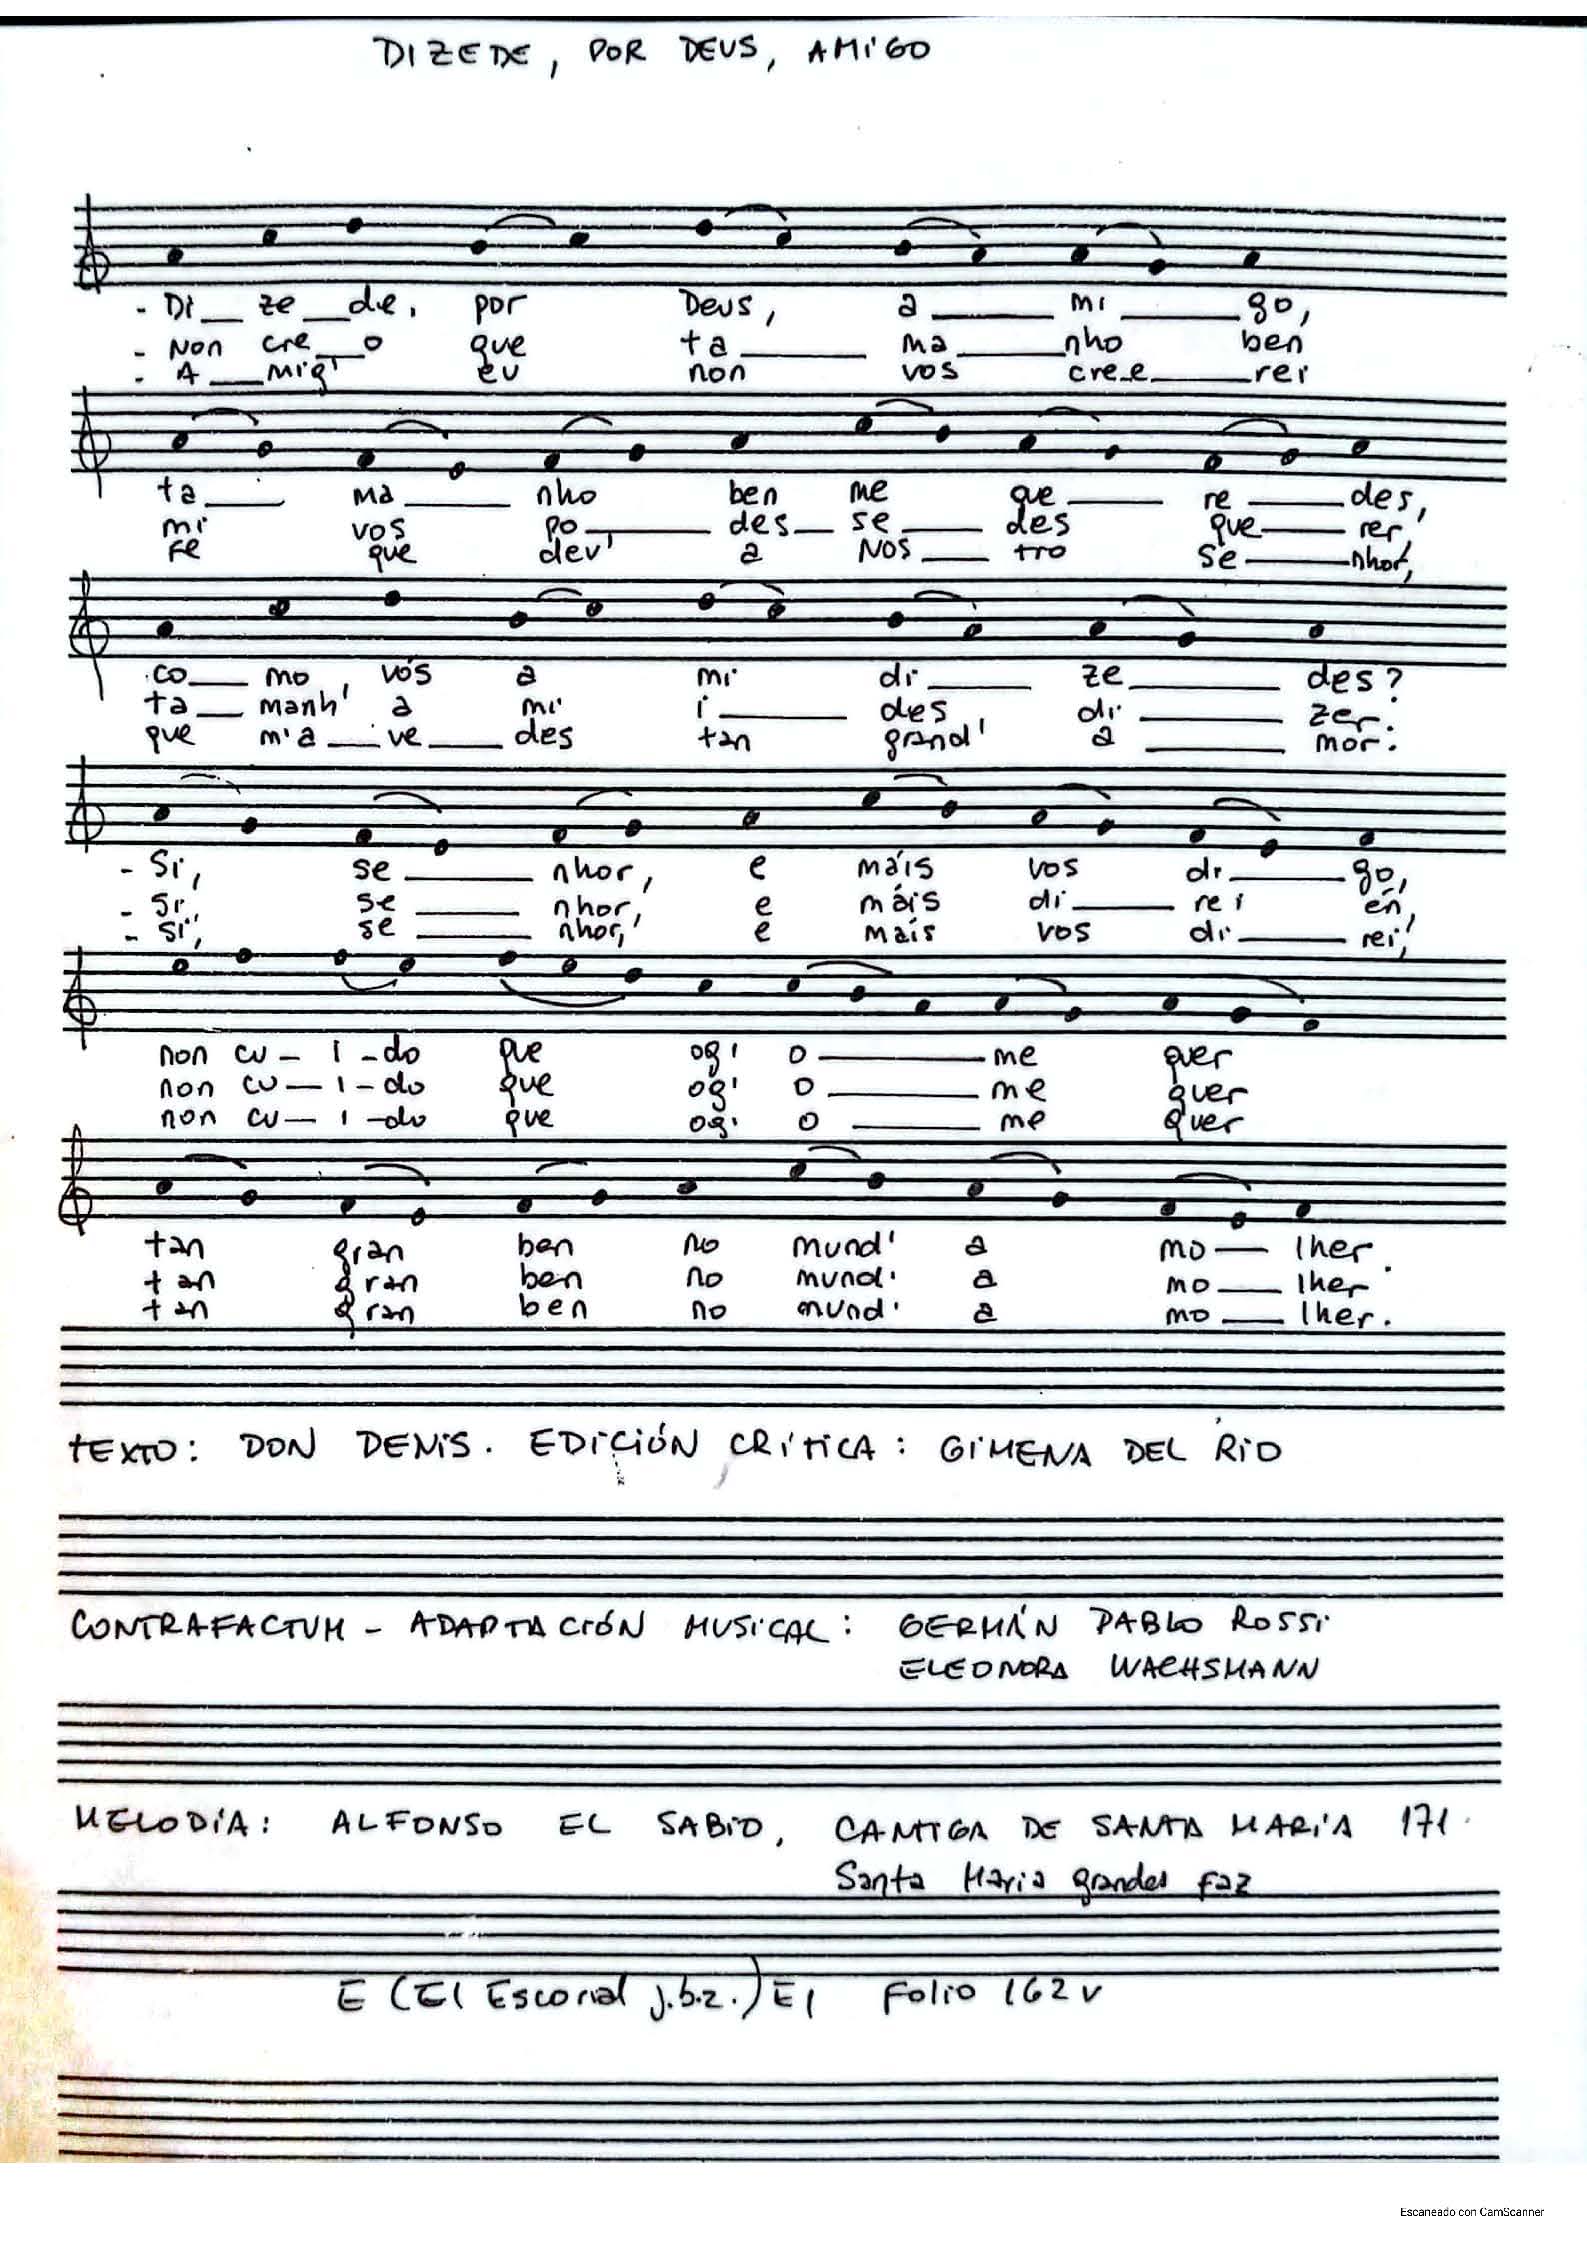 DIZEDE, POR DEUS, AMIGO
- Di__ ze__de, por Deus, a____ mi____go,
- Non cre__o que ta____ ma____nho ben
- A__mig' eu non vos cree____rei
ta____ ma____ nho ben me que____ re____des,
mi vos po____ des__ se__ des que____ rer,
fe que dev' a Nos__ tro se____nhor,
co__ mo, vós a mi di____ ze____ des?
ta__ manh' a mi i____ des di____ zer.
que m'a__ve__ des tan grand' a____ mor.
- Si, se____ nhor, e máis vos di____go,
- Si, se____ nhor, e máis di____ rei én,
- Si, se____ nhor, e máis vos di____ rei,
non cu_ i_do que og' o____me quer
non cu_ i_do que og' o____ me quer
non cu_ i_do que og' o____ me quer
tan gran ben no mund' a mo__ lher.
tan gran ben no mund' a mo__ lher
tan gran ben no mund' a mo__ lher.
TEXTO: DON DENIS. EDICIÓN CRÍTICA: GIMENA DEL RIO
CONTRAFACTUM - ADAPTACIÓN MUSICAL: GERMÁN PABLO ROSSI
ELEONORA WACHSMANN
MELODÍA: ALFONSO EL SABIO, CANTIGA DE SANTA MARÍA 171.
Santa Maria grandes faz
E (El Escorial j.b.2.) E1 Folio 162v
Escaneado con CamScanner